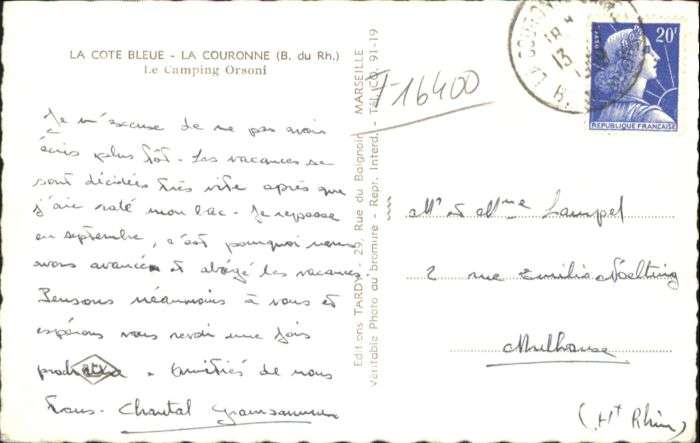 LA COTE BLEUE - LA COURONNE (B. du Rh.)
Le Camping Orsoni
Je m'excuse de ne pas avoir
écris plus tôt. Les vacances se
sont décidées très vite après que
j'aie raté mon bac. Je repasse
en septembre, c'est pourquoi nous
avons avancé et abrégé les vacances.
Pensons néanmoins à vous et
espérons vous revoir une fois
Amitiés de nous
Tous. Chantal
Editions TARDY - 29, Rue du Baignoir - MARSEILLE
Véritable Photo au bromure - Repr. Interd. - Tél. CO. 91-19
T 16400
LA COURONNE
18
13
20F
POSTES
REPUBLIQUE FRANÇAISE
Mr et Mme Lampel
2 rue Emilio Noelting
Mulhouse
(Ht Rhin)